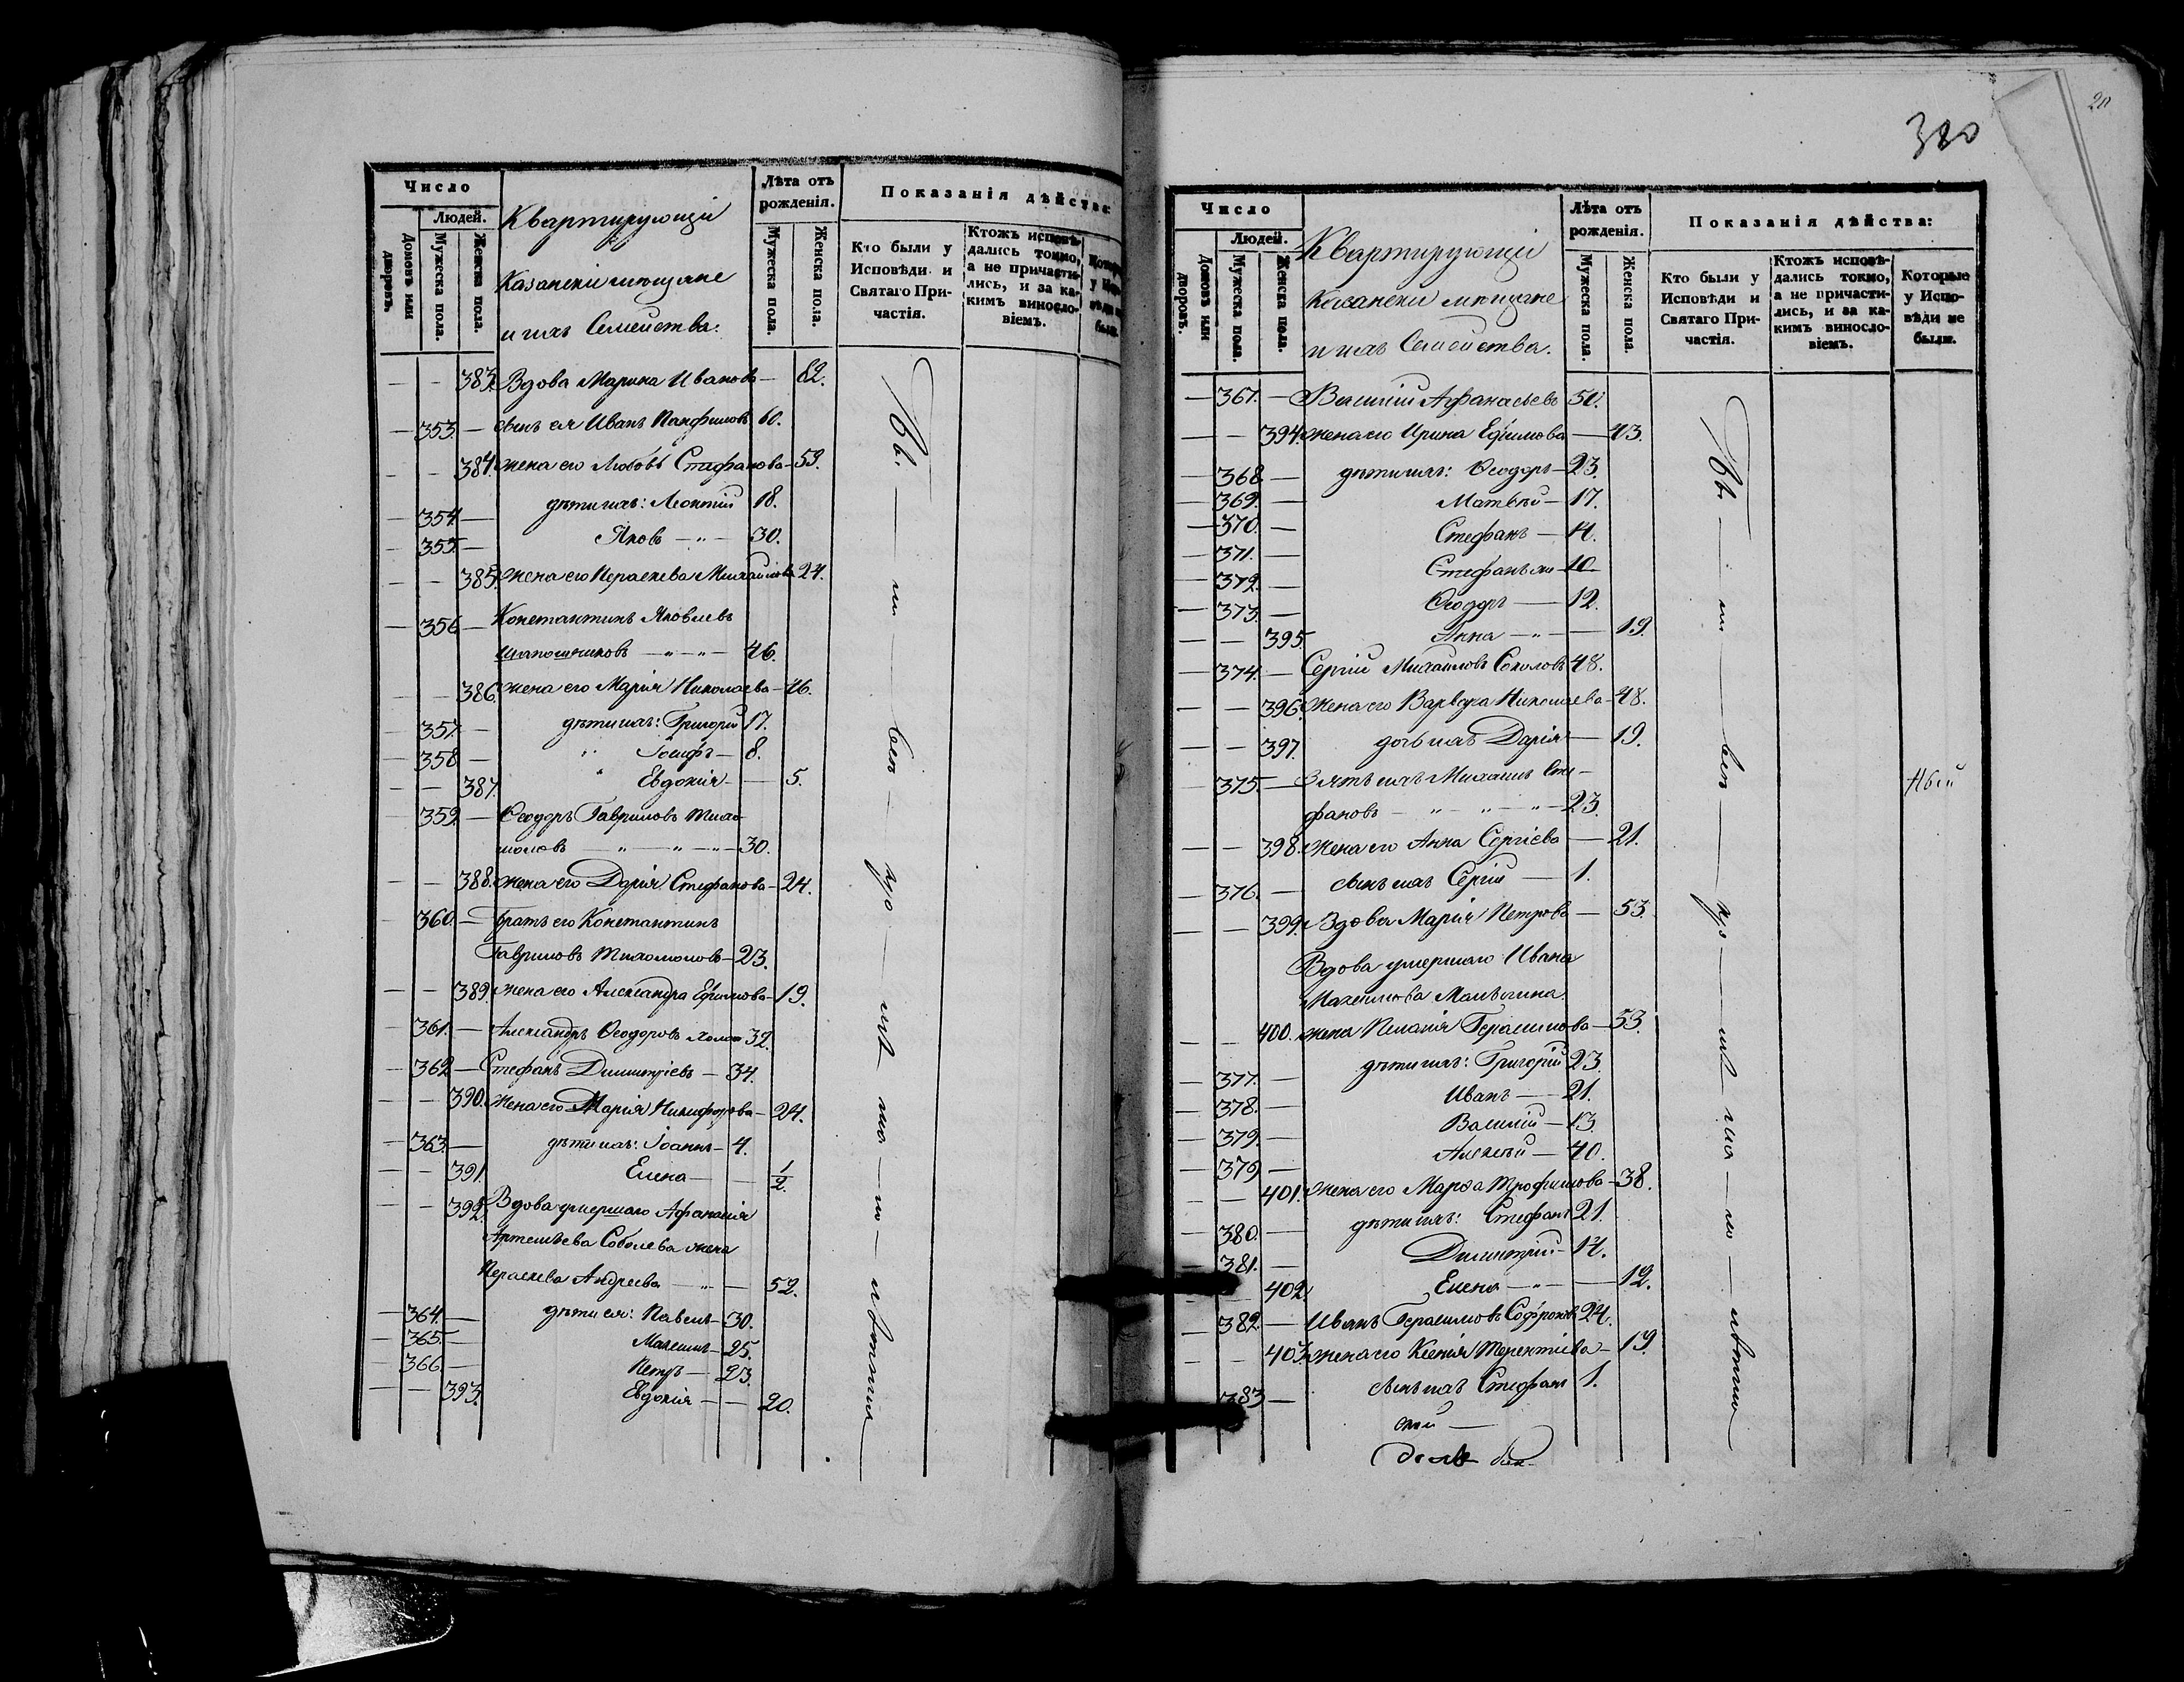 Число
Людей.
Домовъ или дворовъ.
Мужеска пола.
Женска пола.
Квартирующіи
Казанскіи мѣщане
и ихъ Семейства.
Лѣта отъ рожденія.
Мужеска пола.
Женска пола.
Показанія дѣйства:
Кто были у Исповѣди и Святаго Причастія.
Ктожъ исповѣдались токмо, а не причастились, и за какимъ винословіемъ.
— — 383. Вдова Марина Иванова — 82.
— 353. — сынъ ея Иванъ Панфиловъ 60.
— — 384. жена его Любовь Стефанова — 59.
— 354 — дѣти ихъ: Леонтій 18.
— 355. — Яковъ — „ — 30.
— — 385. жена его Параскева Михайлова 24.
— 356 — Константинъ Яковлевъ
Шапошниковъ — „ — „ — 46.
— — 386. жена его Марія Николаева — 46.
— 357. — дѣти ихъ: Григорій 17.
— 358 — „ Іосифъ — 8.
— — 387. „ Евдокія — — 5.
— 359. — Ѳеодоръ Гавриловъ Тихо-
моловъ — „ — „ — „ — 30.
— — 388. жена его Дарія Стефанова — 24.
— 360. — братъ его Константинъ
Гавриловъ Тихомоловъ — 23.
— — 389. жена его Александра Ефимова — 19.
— 361. — Александръ Ѳеодоровъ холост 32.
— 362 — Стефанъ Димитріевъ — 34.
— — 390. жена его Марія Никифорова — 24.
— 363. — дѣти ихъ: Іоаннъ — 4.
— — 391. Елена — — 1/2.
— — 392. Вдова умершаго Афанасія
Артемьева Соболева жена
Параскева Андреева — „ — 52.
— 364. — дѣти ея: Павелъ — 30.
— 365. — Максимъ — 25.
— 366 — Петръ — 23.
— — 393. Евдокія — — 20.
20
Число
Людей.
Домовъ или дворовъ.
Мужеска пола.
Женска пола.
Квартирующіи
Казанскіи мѣщане
и ихъ Семейства.
Лѣта отъ рожденія.
Мужеска пола.
Женска пола.
Показанія дѣйства:
Кто были у Исповѣди и Святаго Причастія.
Ктожъ исповѣдались токмо, а не причастились, и за какимъ винословіемъ.
Которые у Исповѣди не были.
— 367. — Василій Афанасьевъ 50.
— — 394. жена его Ирина Ефимова — 43.
— 368 — дѣти ихъ: Ѳеодоръ — 23.
— 369. — Матвѣй — 17.
— 370. — Стефанъ — 14.
— 371. — Стефанъ — 10
— 372. — Ѳеодоръ — 12.
— 373. —
— — 395. Анна — „ — — 19.
— 374. — Сергій Михайловъ Соколовъ 48.
— — 396. жена его Варвара Николаева — 48.
— — 397. дочь ихъ Дарія — 19.
— 375. — Зять ихъ Михаилъ Сте-
фановъ — „ — „ — „ — 23.
— — 398. жена его Анна Сергіева — 21.
— 376. — сынъ ихъ Сергій — 1.
— — 399. Вдова Марія Петрова — 53.
Вдова умершаго Ивана
— — 400. жена Пелагія Герасимова — 53.
— 377. — дѣти ихъ: Григорій 23.
— 378. — Иванъ — 21.
— 379. — Василій — 13.
— 379 — Алексѣй — 40.
— — 401. жена его Марѳа Трофимова — 38.
— 380. — дѣти ихъ: Стефанъ 21.
— 381. — Димитрій — 14.
— — 402. Елена — „ — — 12.
— 382 — Иванъ Герасимовъ Софроновъ 24.
— — 403. жена его Ксенія Терентіева — 19.
383 — сынъ ихъ Стефанъ 1.